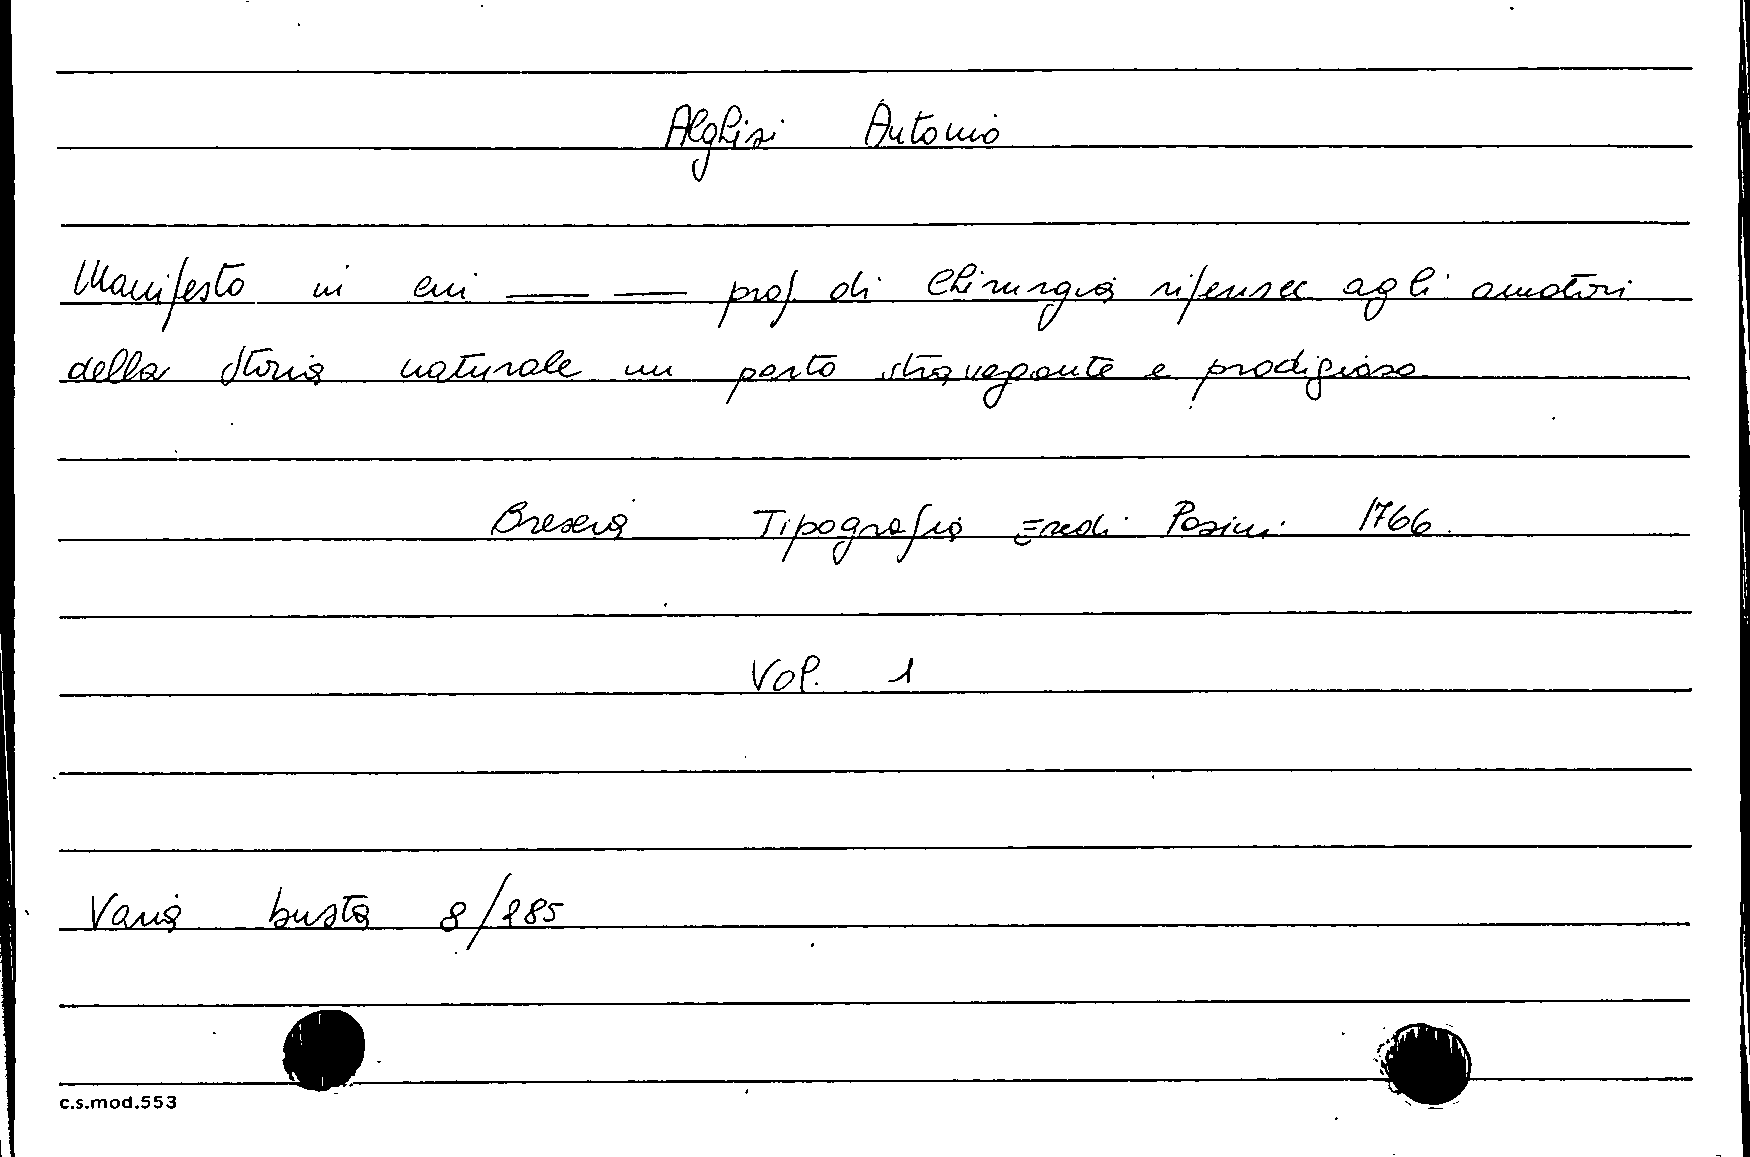 Alghisi Antonio
Manifesto in cui —— —— prof di Chirurgia riferisce agli amatori
della storia naturale un parto stravagante e prodigioso
Brescia Tipografia Eredi Pasini 1766.
Vol. 1
Varia busta 8/285
c.s.mod.553